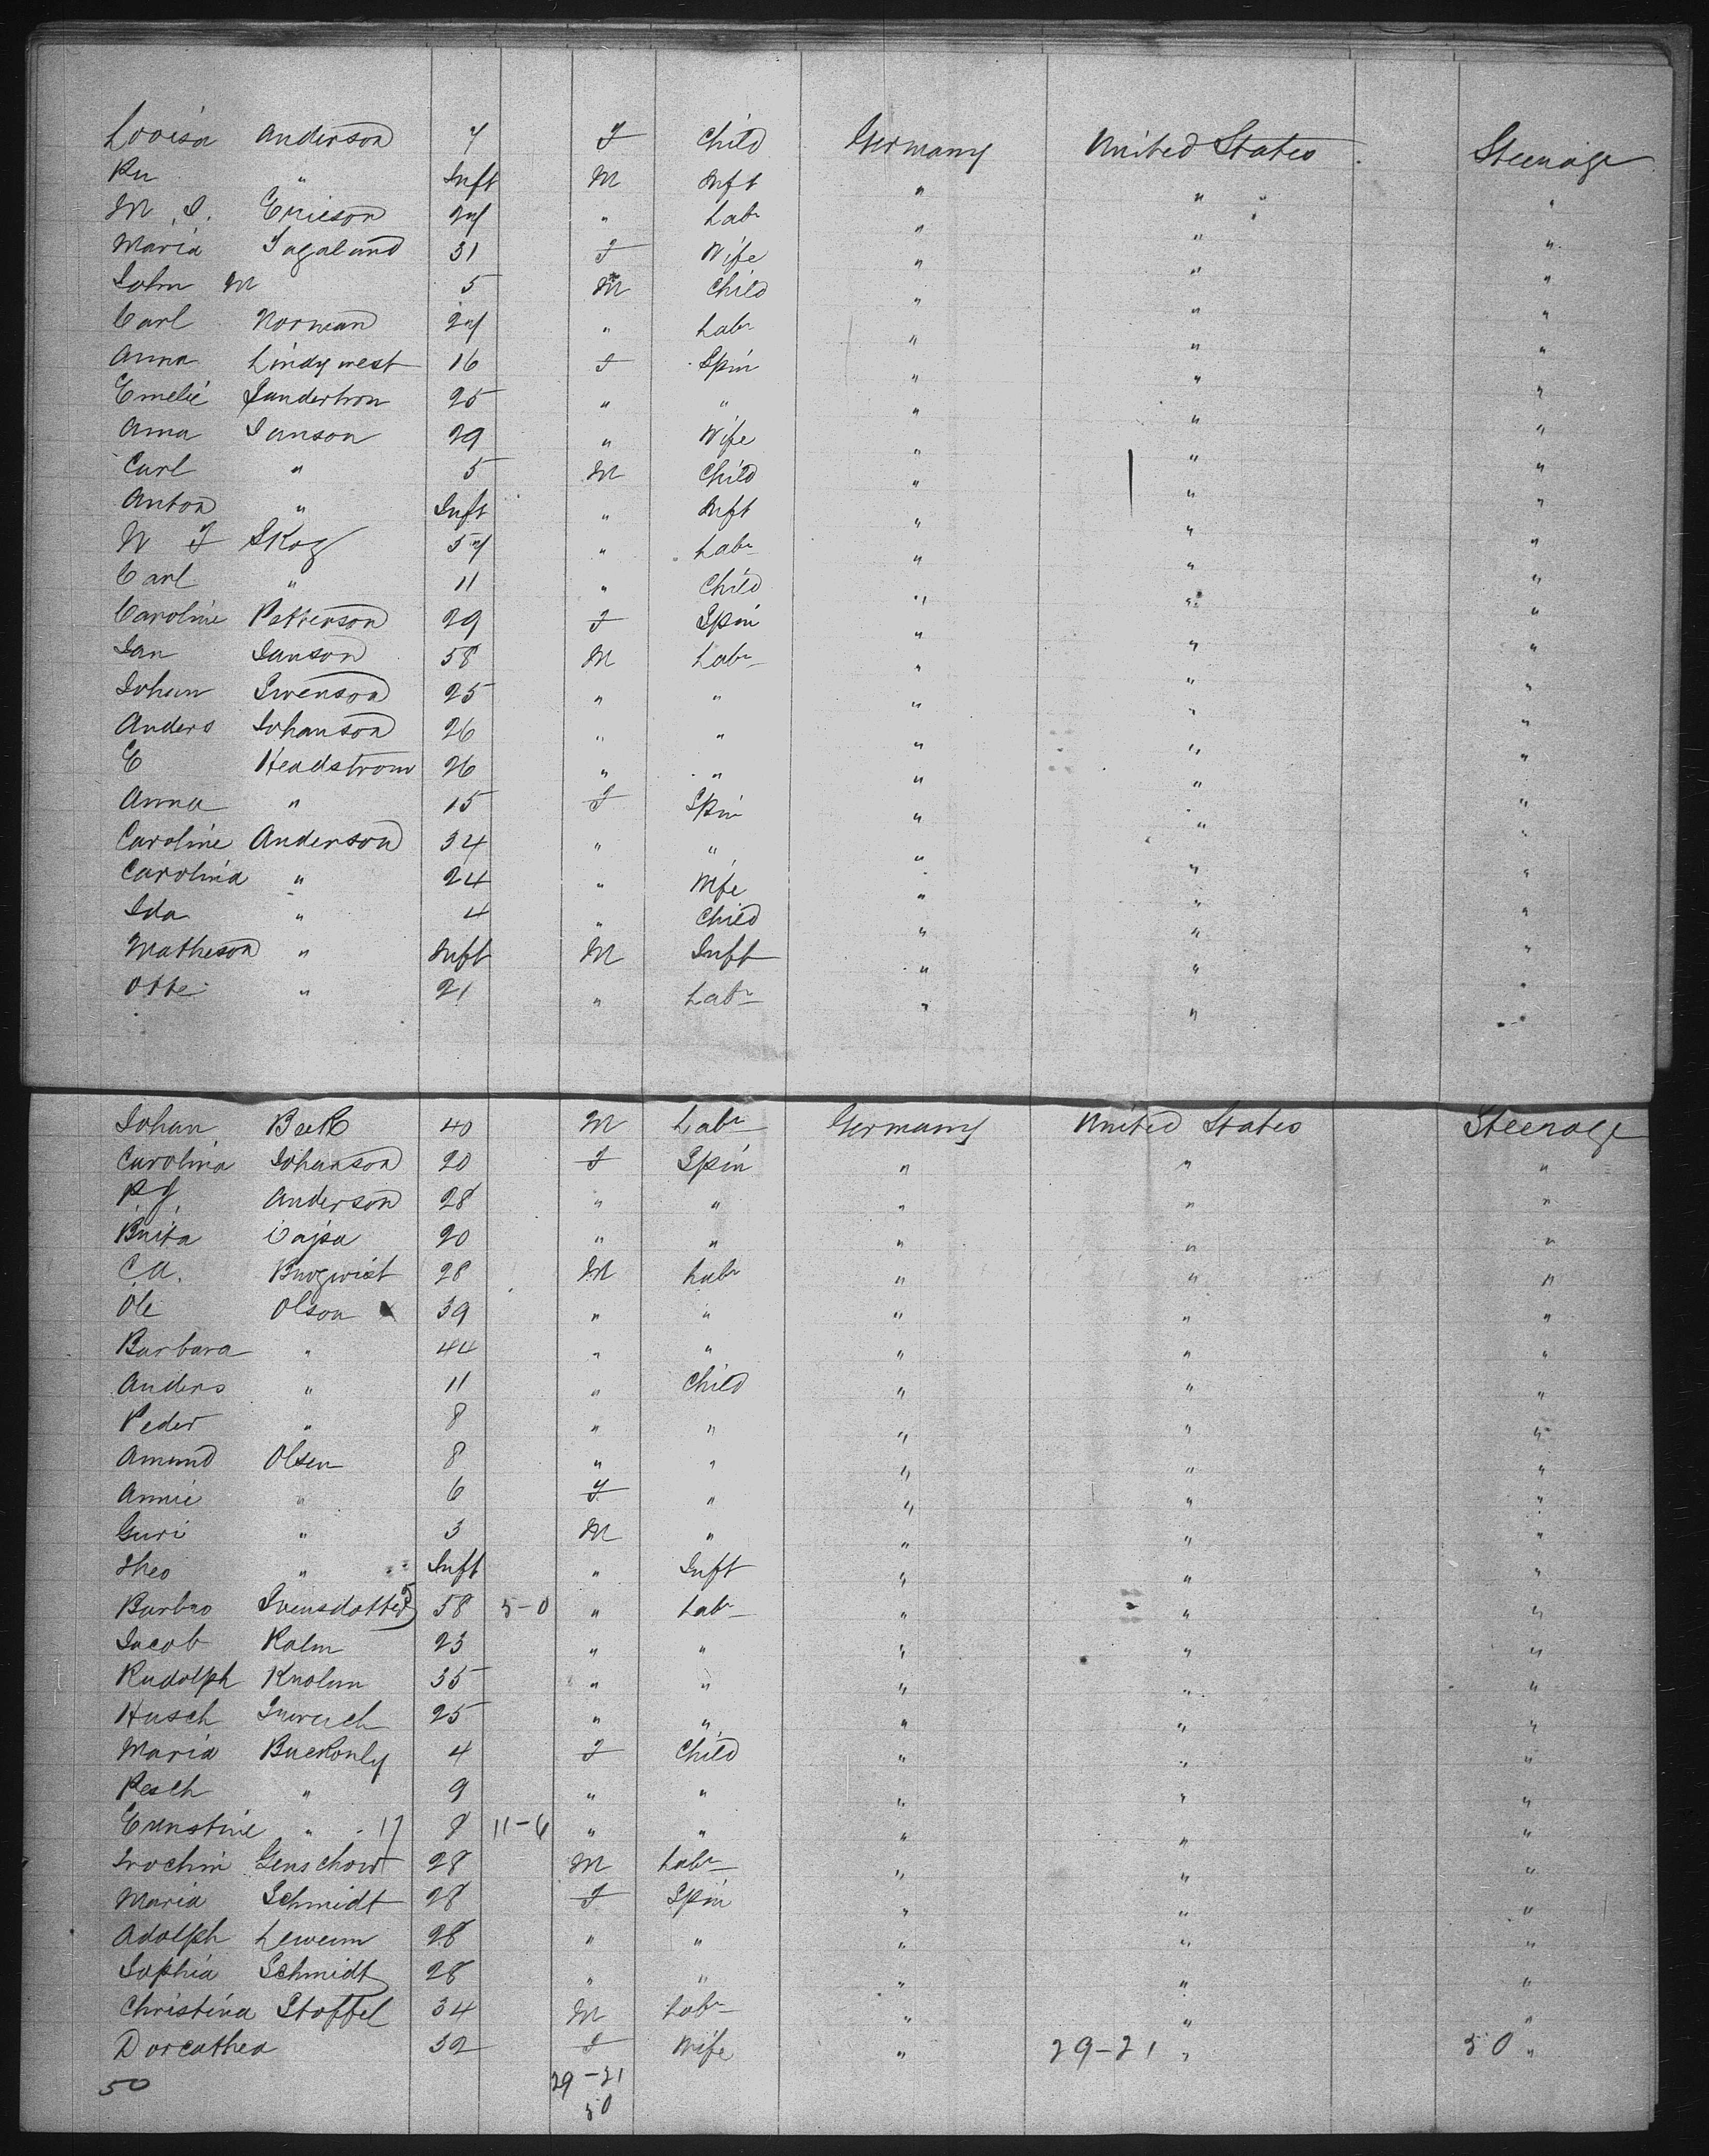 Lovisa Anderson 7 F Child Germany United States Steerage
" Inft M Inft " " "
M. I. Ericson 27 " Labr " " "
Maria Fagalund 31 F Wife " " "
John M 5 M Child " " "
Carl Norman 27 " Labr " " "
Anna Lindqwest 16 F Spin " " "
Emelie 25 " " " " "
Anna Janson 29 " Wife " " "
Carl " 5 M Child " " "
Anton " Inft " Inft " " "
N F Skog 57 " Labr " " "
Carl " 11 " Child " " "
Caroline Petterson 29 F Spin " " "
Jan Janson 58 M Labr " " "
Johan Swenson 25 " " " " "
Anders Johanson 26 " " " " "
C Headstrom 26 " " " " "
Anna " 15 F Spin " " "
Caroline Anderson 34 " " " " "
Carolina " 24 " Wife " " "
Ida " 4 " Child " " "
Matheson " Inft M Inft " " "
Otte " 21 " Labr " " "
Johan 40 M Labr Germany United States Steerage
Carolina Johanson 20 F Spin " " "
Anderson 28 " " " " "
Brita Cajsa 20 " " " " "
C. A. 28 M Labr " " "
Ole Olson 39 " " " " "
Barbara " 44 " " " " "
Anders " 11 " Child " " "
Peder " 8 " " " " "
Amund Olsen 8 " " " " "
Annie " 6 F " " " "
Guri " 3 M " " " "
Theo " Inft " Inft " " "
Barbro Svensdotter 58 5-0 " Labr " " "
Jacob Kalm 23 " " " " "
Rudolph Knolum 35 " " " " "
Husch 25 " " " " "
Maria Buckonly 4 F Child " " "
Resch " 9 " " " " "
Ernstine " 17 8 11-6 " " " " "
Genschow 28 M Labr " " "
Maria Schmidt 28 F Spin " " "
Adolph 28 " " " " "
Sophia Schmidt 28 " " " " "
Christina Stoffel 34 M Labr " " "
Dorcathea 32 F Wife " 29-21 " 50 "
50 29-21
50